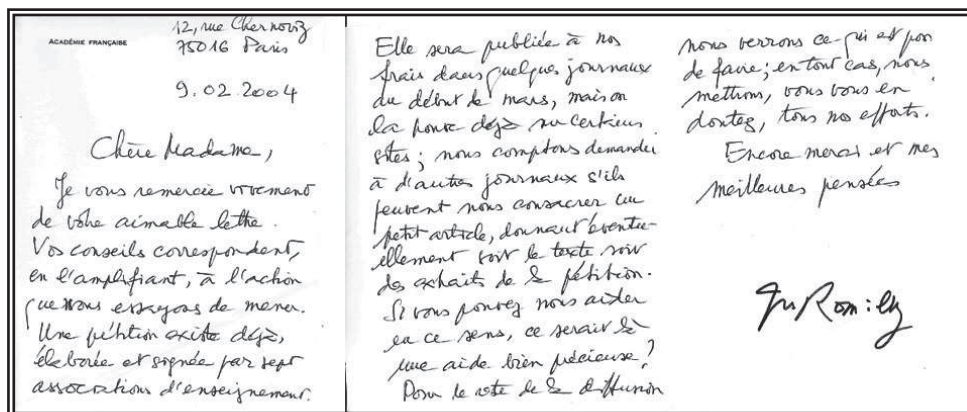 ACADÉMIE FRANÇAISE
12, rue Chernoviz
75016 Paris
9.02.2004
Chère Madame,
Je vous remercie vivement
de votre aimable lettre.
Vos conseils correspondent,
en l'amplifiant, à l'action
que nous essayons de mener.
Une pétition existe déjà,
élaborée et signée par sept
associations d'enseignement.
Elle sera publiée à nos
frais dans quelques journaux
du début de mars, mais on
la trouve déjà sur certains
sites ; nous comptons demander
à d'autres journaux s'ils
peuvent nous consacrer un
petit article, donnant éventu-
ellement soit le texte soit
des extraits de la pétition.
Si vous pouvez nous aider
en ce sens, ce serait là
une aide bien précieuse ?
Pour le reste de la diffusion
nous verrons ce qui est
de faire ; en tout cas, nous
mettrons, vous vous en
doutez, tous nos efforts.
Encore merci et mes
meilleures pensées
Romilly